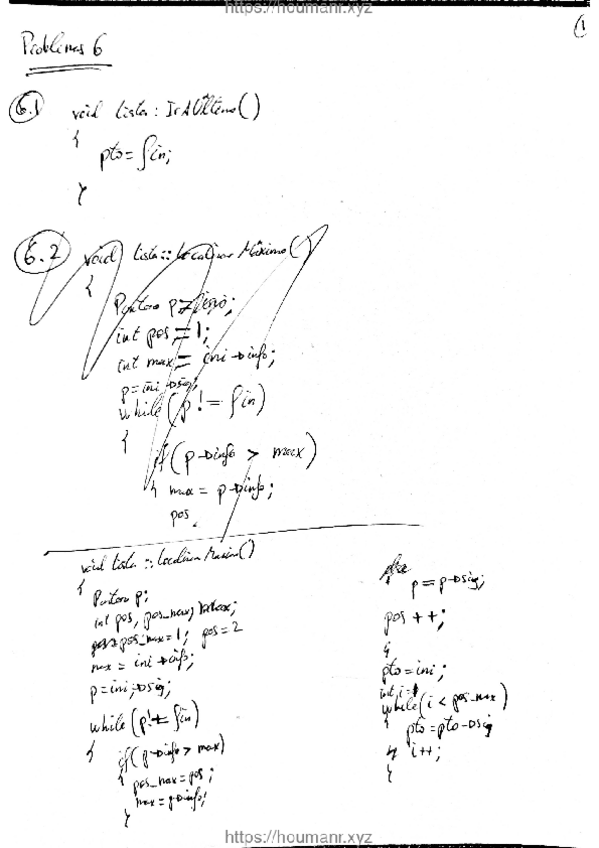 https://houmanr.xyz
(1
Problemas 6
6.1 void Lista::IrAÚltimo()
{
pto = fin;
}
6.2 void Lista::LocalizarMáximo()
{
Puntero p;
int pos = 1;
int max = ini->info;
p = ini->sig;
while (p != fin)
{
if (p->info > max)
{ max = p->info;
pos
void Lista::LocalizarMaximo()
{
Puntero p;
int pos, pos_max, max;
pos_max = 1; pos = 2
max = ini->info;
p = ini->sig;
while (p != fin)
{
if (p->info > max)
{
pos_max = pos;
max = p->info;
}
p = p->sig;
pos ++;
}
pto = ini;
int i = 1
while (i < pos_max)
{
pto = pto->sig
i++;
}
https://houmanr.xyz